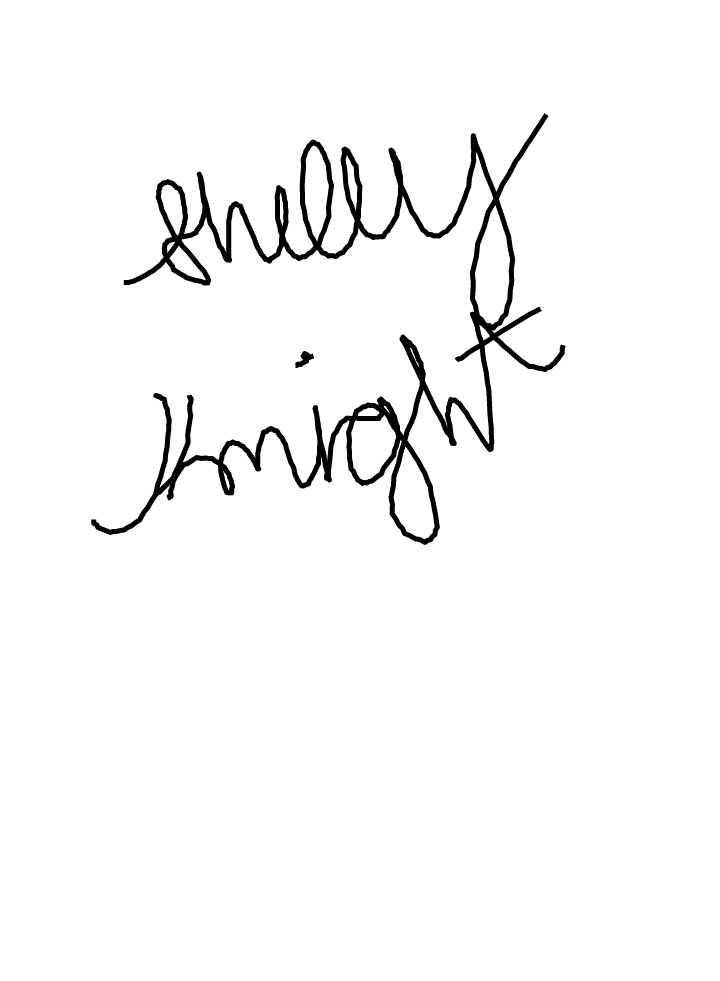 Shelly
Knight